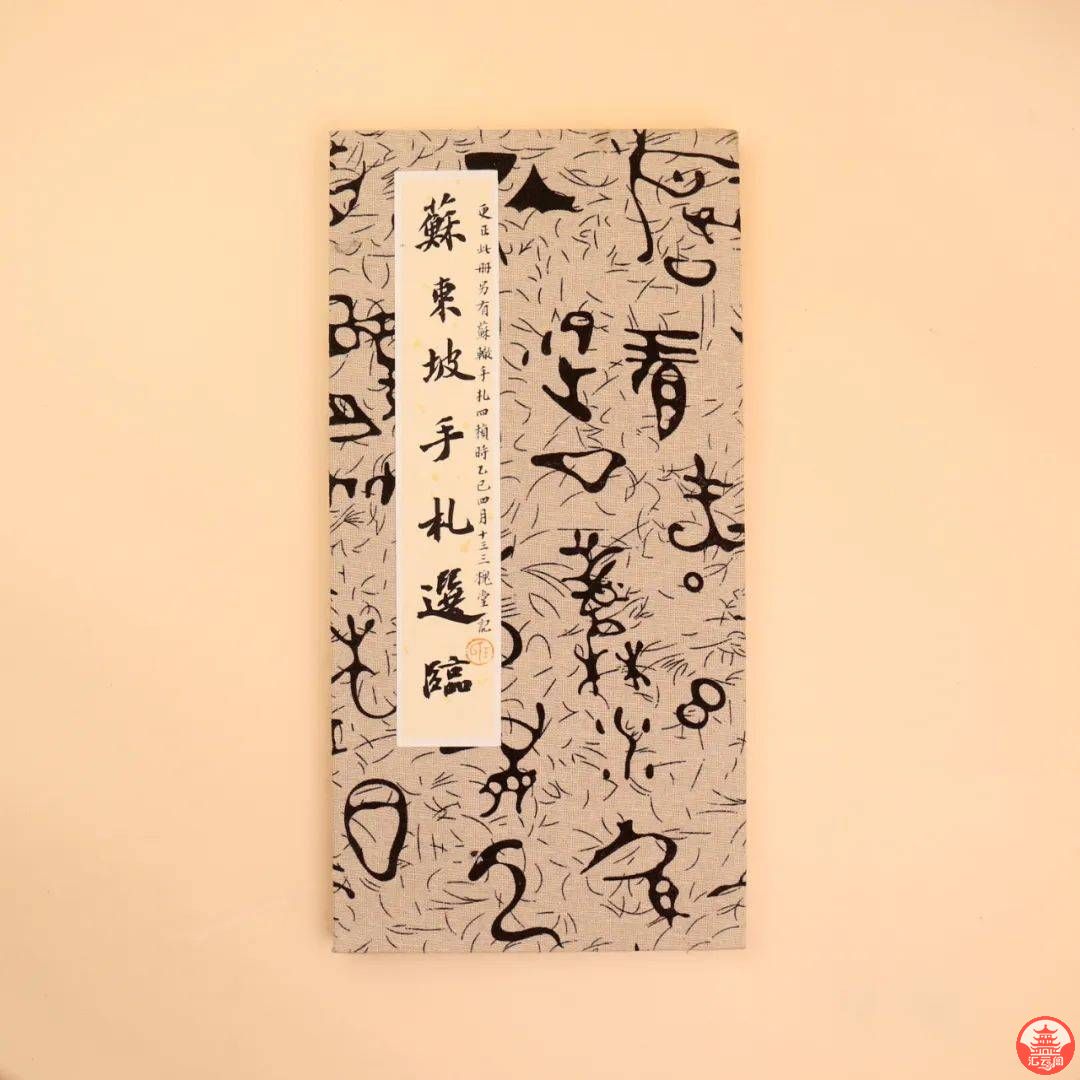 蘇東坡手札選臨
更正此册另有蘇轍手札四楨時乙巳四月十三三槐堂記
汇云阁